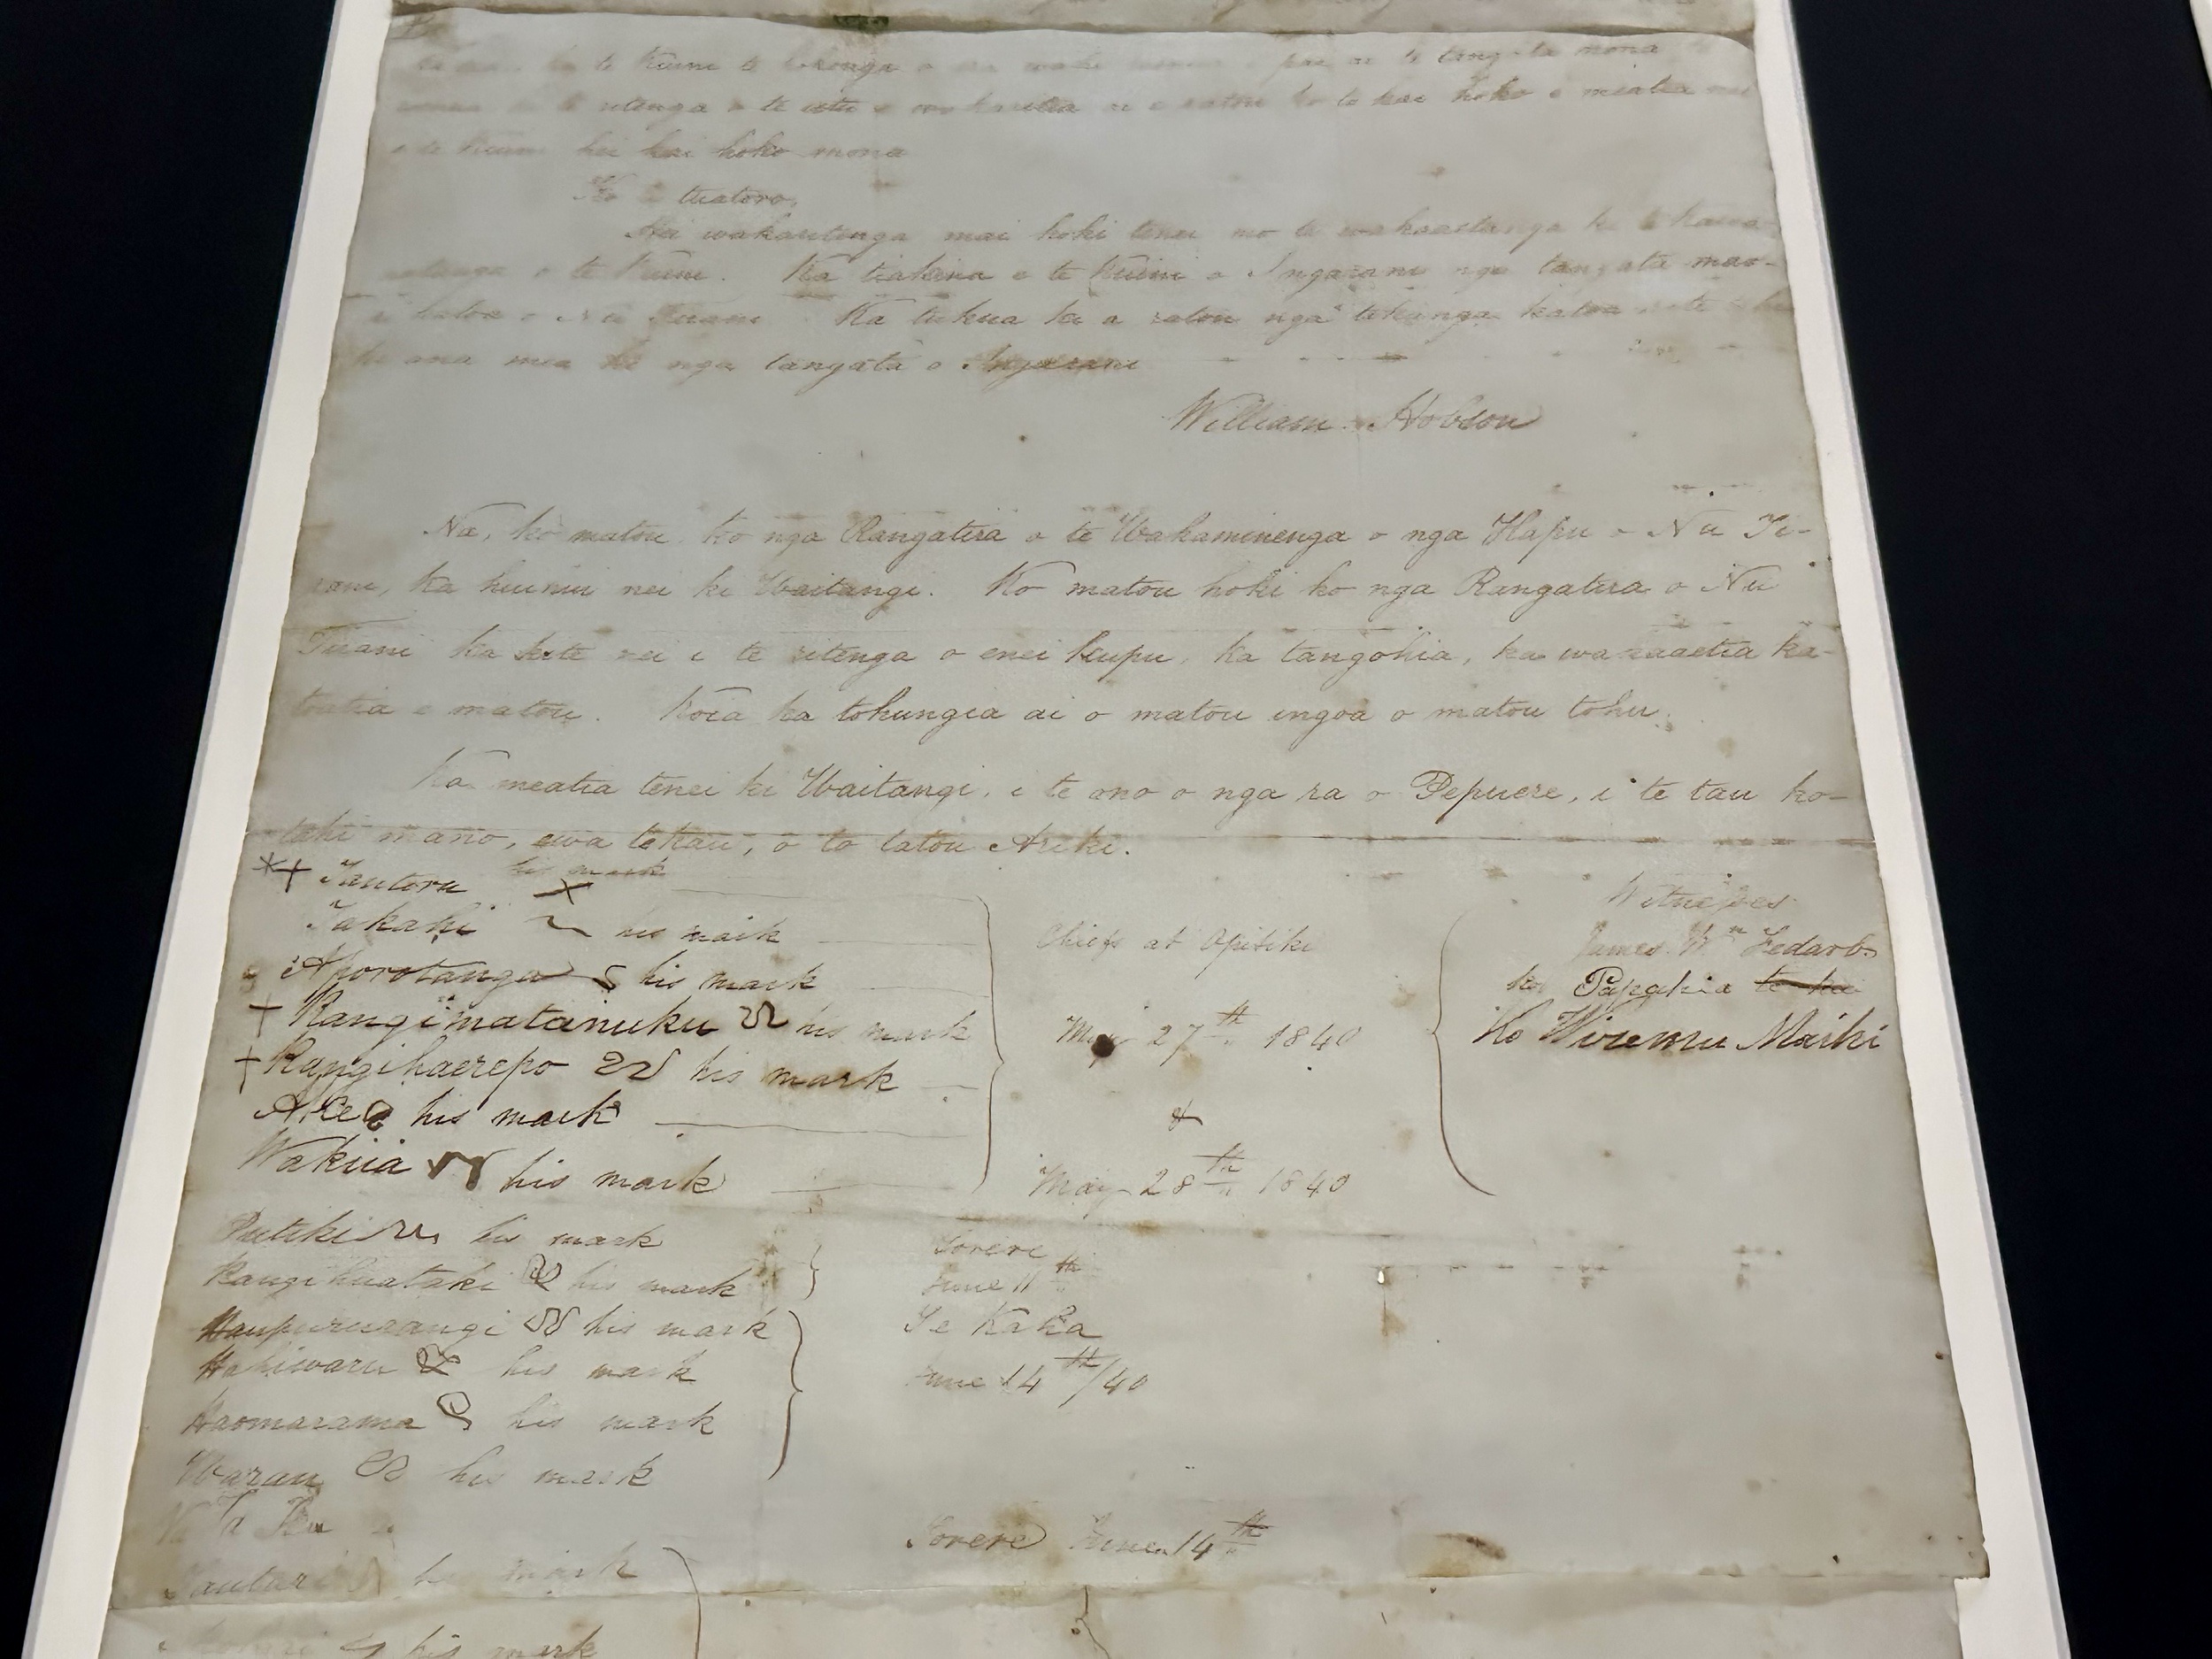 te Kuini te tangata mona
ritenga o te utu e wakaritea ai e ratou ko te kai hoko e meatia nei
e te Kuini hei kai hoko mona
Ko te tuatoru,
Hei wakaritenga mai hoki tenei mo te wakaaetanga ki te Kawa-
natanga o te Kuini. Ka tiakina e te Kuini o Ingarani nga tangata mao-
i katoa o Nu Tirani Ka tukua ki a ratou nga tekanga katoa
ki ana mea ki nga tangata o Ingarani
William Hobson
Na, ko matou ko nga Rangatira o te Wakaminenga o nga Hapu o Nu Ti-
rani, ka huihui nei ki Waitangi. Ko matou hoki ko nga Rangatira o Nu
Tirani ka kite nei i te ritenga o enei kupu, ka tangohia, ka wakaaetia ka-
toatia e matou. Koia ka tohungia ai o matou ingoa o matou tohu.
Ka meatia tenei ki Waitangi, i te ono o nga ra o Pepuere, i te tau ko-
tahi mano, ewa tekau, o to tatou Ariki.
Tautoru his mark
Takahi his mark
Aporotanga his mark
Rangimatanuku his mark
Rangihaerepo his mark
Ake his mark
Wakiia his mark
Chiefs at Opitiki
May 27th 1840
&
May 28th 1840
Witnesses
James Wm Fedarb.
ko Papahia
Ko Wiremu Maihi
Putiki his mark
Rangihuataki his mark
Torere
June 11th
Haupururangi his mark
Hahiwaru his mark
Haomarama his mark
Warau his mark
Te Kaha
June 14th/40
Torere June 14th
his mark
his mark